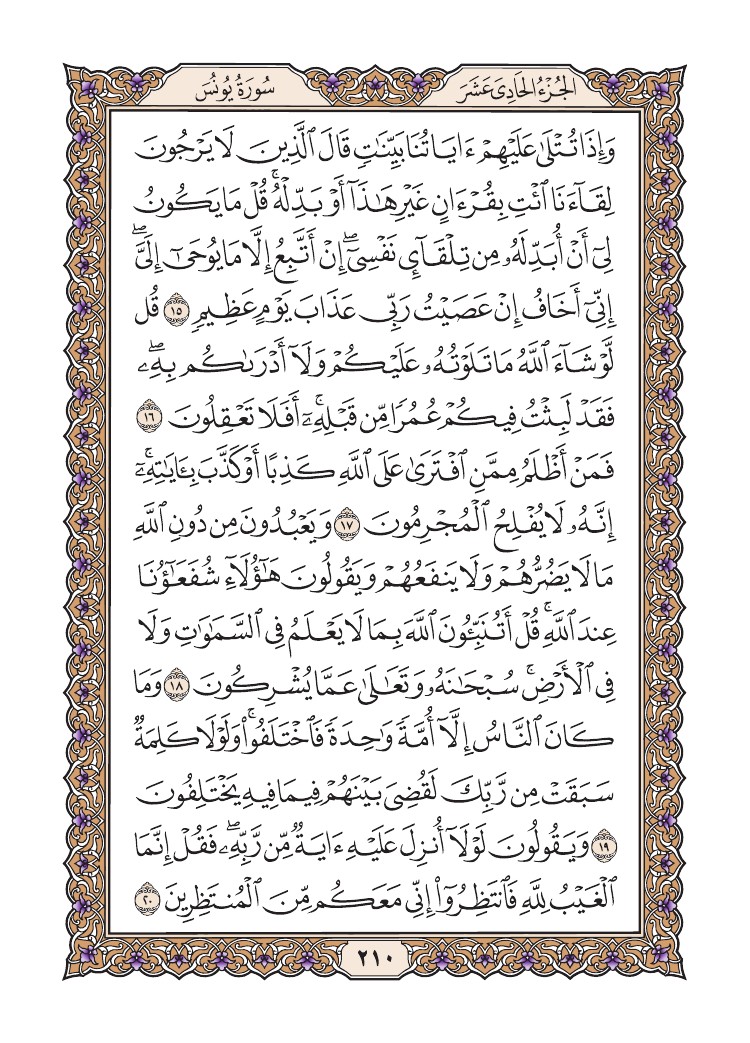 الجزء الحادي عشر
سورة يونس
وَإِذَا تُتْلَىٰ عَلَيْهِمْ ءَايَاتُنَا بَيِّنَـٰتٍ قَالَ ٱلَّذِينَ لَا يَرْجُونَ
لِقَآءَنَا ٱئْتِ بِقُرْءَانٍ غَيْرِ هَـٰذَآ أَوْ بَدِّلْهُ ۚ قُلْ مَا يَكُونُ
لِىٓ أَنْ أُبَدِّلَهُۥ مِن تِلْقَآئِ نَفْسِىٓ ۖ إِنْ أَتَّبِعُ إِلَّا مَا يُوحَىٰٓ إِلَىَّ ۖ
إِنِّىٓ أَخَافُ إِنْ عَصَيْتُ رَبِّى عَذَابَ يَوْمٍ عَظِيمٍ ١٥ قُل
لَّوْ شَآءَ ٱللَّهُ مَا تَلَوْتُهُۥ عَلَيْكُمْ وَلَآ أَدْرَىٰكُم بِهِۦ ۖ
فَقَدْ لَبِثْتُ فِيكُمْ عُمُرًا مِّن قَبْلِهِۦٓ ۚ أَفَلَا تَعْقِلُونَ ١٦
فَمَنْ أَظْلَمُ مِمَّنِ ٱفْتَرَىٰ عَلَى ٱللَّهِ كَذِبًا أَوْ كَذَّبَ بِـَٔايَـٰتِهِۦٓ ۚ
إِنَّهُۥ لَا يُفْلِحُ ٱلْمُجْرِمُونَ ١٧ وَيَعْبُدُونَ مِن دُونِ ٱللَّهِ
مَا لَا يَضُرُّهُمْ وَلَا يَنفَعُهُمْ وَيَقُولُونَ هَـٰٓؤُلَآءِ شُفَعَـٰٓؤُنَا
عِندَ ٱللَّهِ ۚ قُلْ أَتُنَبِّـُٔونَ ٱللَّهَ بِمَا لَا يَعْلَمُ فِى ٱلسَّمَـٰوَٰتِ وَلَا
فِى ٱلْأَرْضِ ۚ سُبْحَـٰنَهُۥ وَتَعَـٰلَىٰ عَمَّا يُشْرِكُونَ ١٨ وَمَا
كَانَ ٱلنَّاسُ إِلَّآ أُمَّةً وَٰحِدَةً فَٱخْتَلَفُوا۟ ۚ وَلَوْلَا كَلِمَةٌ
سَبَقَتْ مِن رَّبِّكَ لَقُضِىَ بَيْنَهُمْ فِيمَا فِيهِ يَخْتَلِفُونَ
١٩ وَيَقُولُونَ لَوْلَآ أُنزِلَ عَلَيْهِ ءَايَةٌ مِّن رَّبِّهِۦ ۖ فَقُلْ إِنَّمَا
ٱلْغَيْبُ لِلَّهِ فَٱنتَظِرُوٓا۟ إِنِّى مَعَكُم مِّنَ ٱلْمُنتَظِرِينَ ٢٠
٢١٠